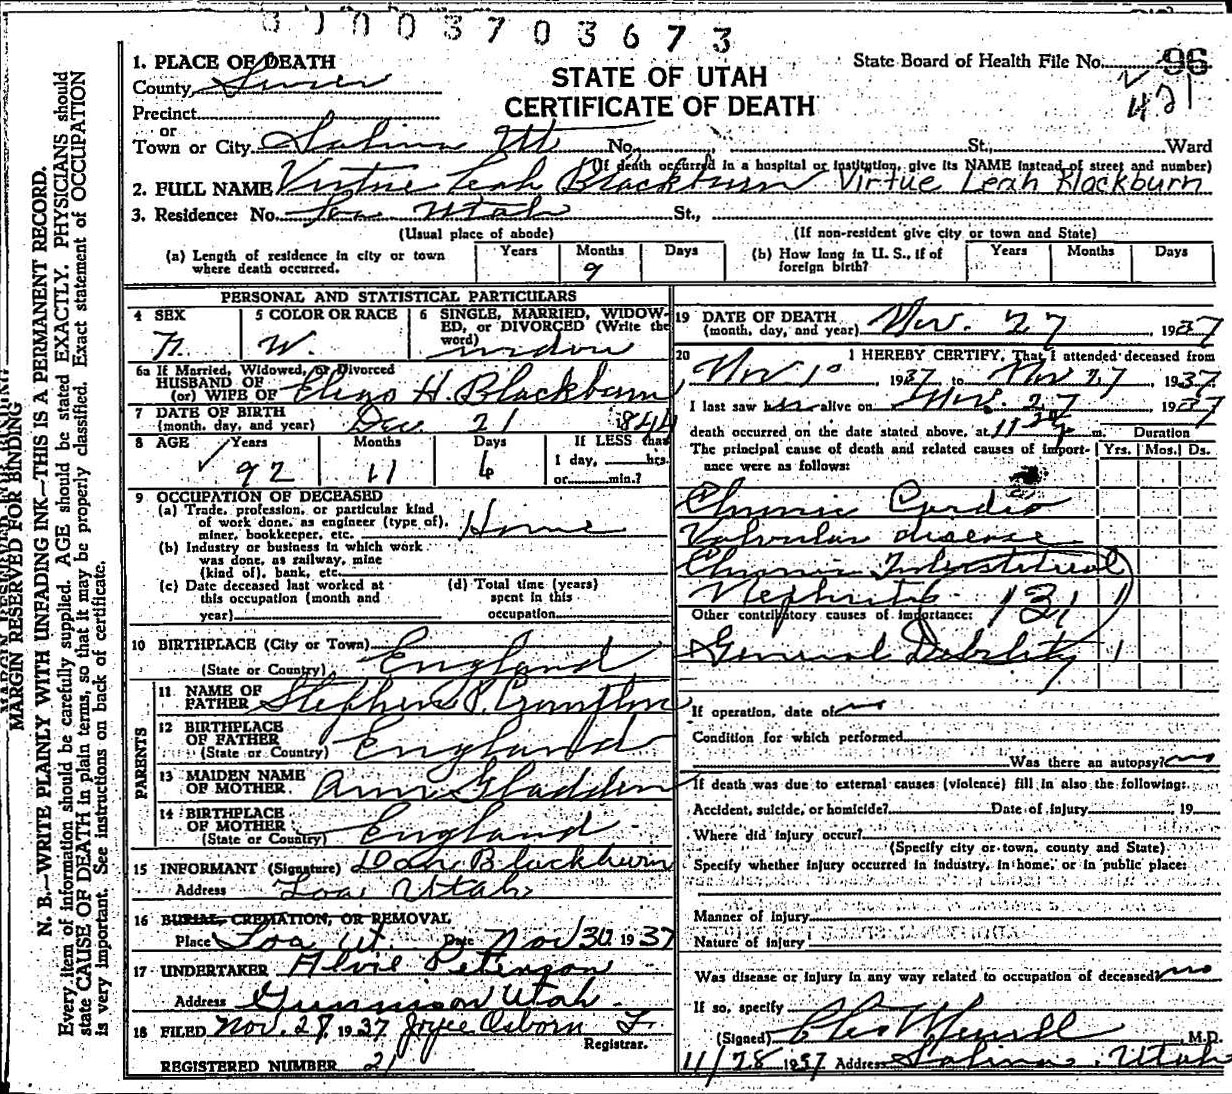 3 1 0 0 3 7 0 3 6 7 3
1. PLACE OF DEATH
County Sevier
STATE OF UTAH
CERTIFICATE OF DEATH
State Board of Health File No. 96
421
Precinct
or
Town or City Salina Ut No. St., Ward
(If death occurred in a hospital or institution, give its NAME instead of street and number)
2. FULL NAME Virtue Leah Blackburn Virtue Leah Blackburn
3. Residence: No. Loa Utah St.,
(Usual place of abode) (If non-resident give city or town and State)
(a) Length of residence in city or town where death occurred. Years Months 9 Days
(b) How long in U. S., if of foreign birth? Years Months Days
PERSONAL AND STATISTICAL PARTICULARS
4 SEX F. 5 COLOR OR RACE W. 6 SINGLE, MARRIED, WIDOWED, or DIVORCED (Write the word) widow
6a If Married, Widowed, or Divorced
HUSBAND OF
(or) WIFE OF H. Blackburn
7 DATE OF BIRTH
(month, day, and year) Dec. 21 1844
8 AGE Years 92 Months 11 Days 6 If LESS than 1 day, hrs. or min.?
9 OCCUPATION OF DECEASED
(a) Trade, profession, or particular kind
of work done, as engineer (type of),
miner, bookkeeper, etc. Home
(b) Industry or business in which work
was done, as railway, mine
(kind of), bank, etc.
(c) Date deceased last worked at
this occupation (month and
year)
(d) Total time (years)
spent in this
occupation
10 BIRTHPLACE (City or Town)
(State or Country) England
PARENTS
11 NAME OF
FATHER Stephen P. Crompton
12 BIRTHPLACE
OF FATHER
(State or Country) England
13 MAIDEN NAME
OF MOTHER. Ann Gladden
14 BIRTHPLACE
OF MOTHER
(State or Country) England
15 INFORMANT (Signature) Blackburn
Address Loa Utah
16 BURIAL, CREMATION, OR REMOVAL
Place Loa Ut. Date Nov 30 1937
17 UNDERTAKER Alvie Peterson
Address Gunnison Utah
18 FILED Nov. 28, 1937 Joyce Osborn
Registrar.
REGISTERED NUMBER 21
19 DATE OF DEATH
(month, day, and year) Nov. 27 1937
20 I HEREBY CERTIFY, That I attended deceased from
Nov 10 1937 to Nov 27 1937
I last saw her alive on Nov. 27 1937
death occurred on the date stated above, at 11 30 p m.
Duration
The principal cause of death and related causes of importance were as follows: Yrs. Mos. Ds.
Chronic Cardio
Valvular disease
Chronic Interstitial
Nephritis 131
Other contributory causes of importance:
General Debility
If operation, date of no
Condition for which performed
Was there an autopsy? no
If death was due to external causes (violence) fill in also the following:
Accident, suicide, or homicide? Date of injury 19
Where did injury occur?
(Specify city or town, county and State)
Specify whether injury occurred in industry, in home, or in public place:
Manner of injury
Nature of injury
Was disease or injury in any way related to occupation of deceased? no
If so, specify
(Signed) M.D.
11/28 1937 Address Salina, Utah
MARGIN RESERVED FOR BINDING
N. B.—WRITE PLAINLY WITH UNFADING INK—THIS IS A PERMANENT RECORD.
Every item of information should be carefully supplied. AGE should be stated EXACTLY. PHYSICIANS should
state CAUSE OF DEATH in plain terms, so that it may be properly classified. Exact statement of OCCUPATION
is very important. See instructions on back of certificate.